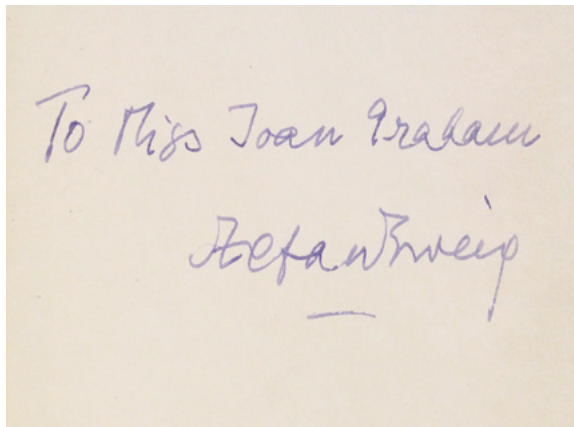 To Miss Joan Graham
Stefan Zweig